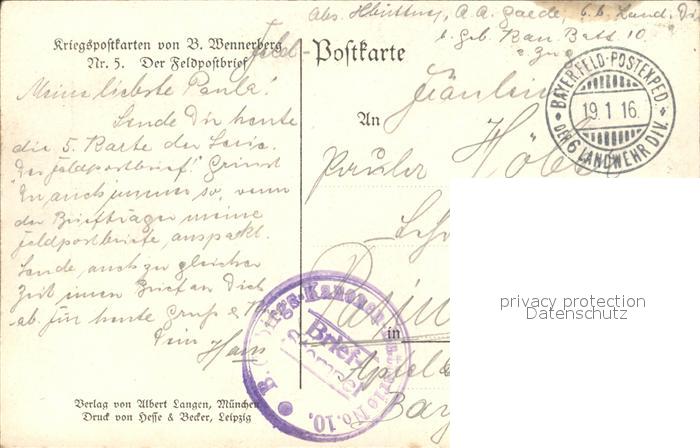 Kriegspostkarten von B. Wennerberg
Nr. 5. Der Feldpostbrief
Feld-Postkarte
Abs. A. A. Gaede, 6. b. Land. Div.
b. Geb. Kan. Batt. 10.
BAYER.FELD-POSTEXPED.
19.1.16.
DER 6 LANDWEHR DIV.
An
Fräulein
Paula
in
Bay
Meine liebste Paula!
Sende Dir heute
die 5. Karte der Serie
"Der Feldpostbrief." Grinst
Du auch immer so, wenn
der Briefträger meine
Feldpostbriefe auspackt.
Sende auch zu gleicher
Zeit einen Brief an Dich
ab. Für heute Gruß &
Dein Hans
B. Gebirgs-Kanonen-Batterie No. 10.
Brief-
Stempel
Verlag von Albert Langen, München
Druck von Hesse & Becker, Leipzig
privacy protection
Datenschutz